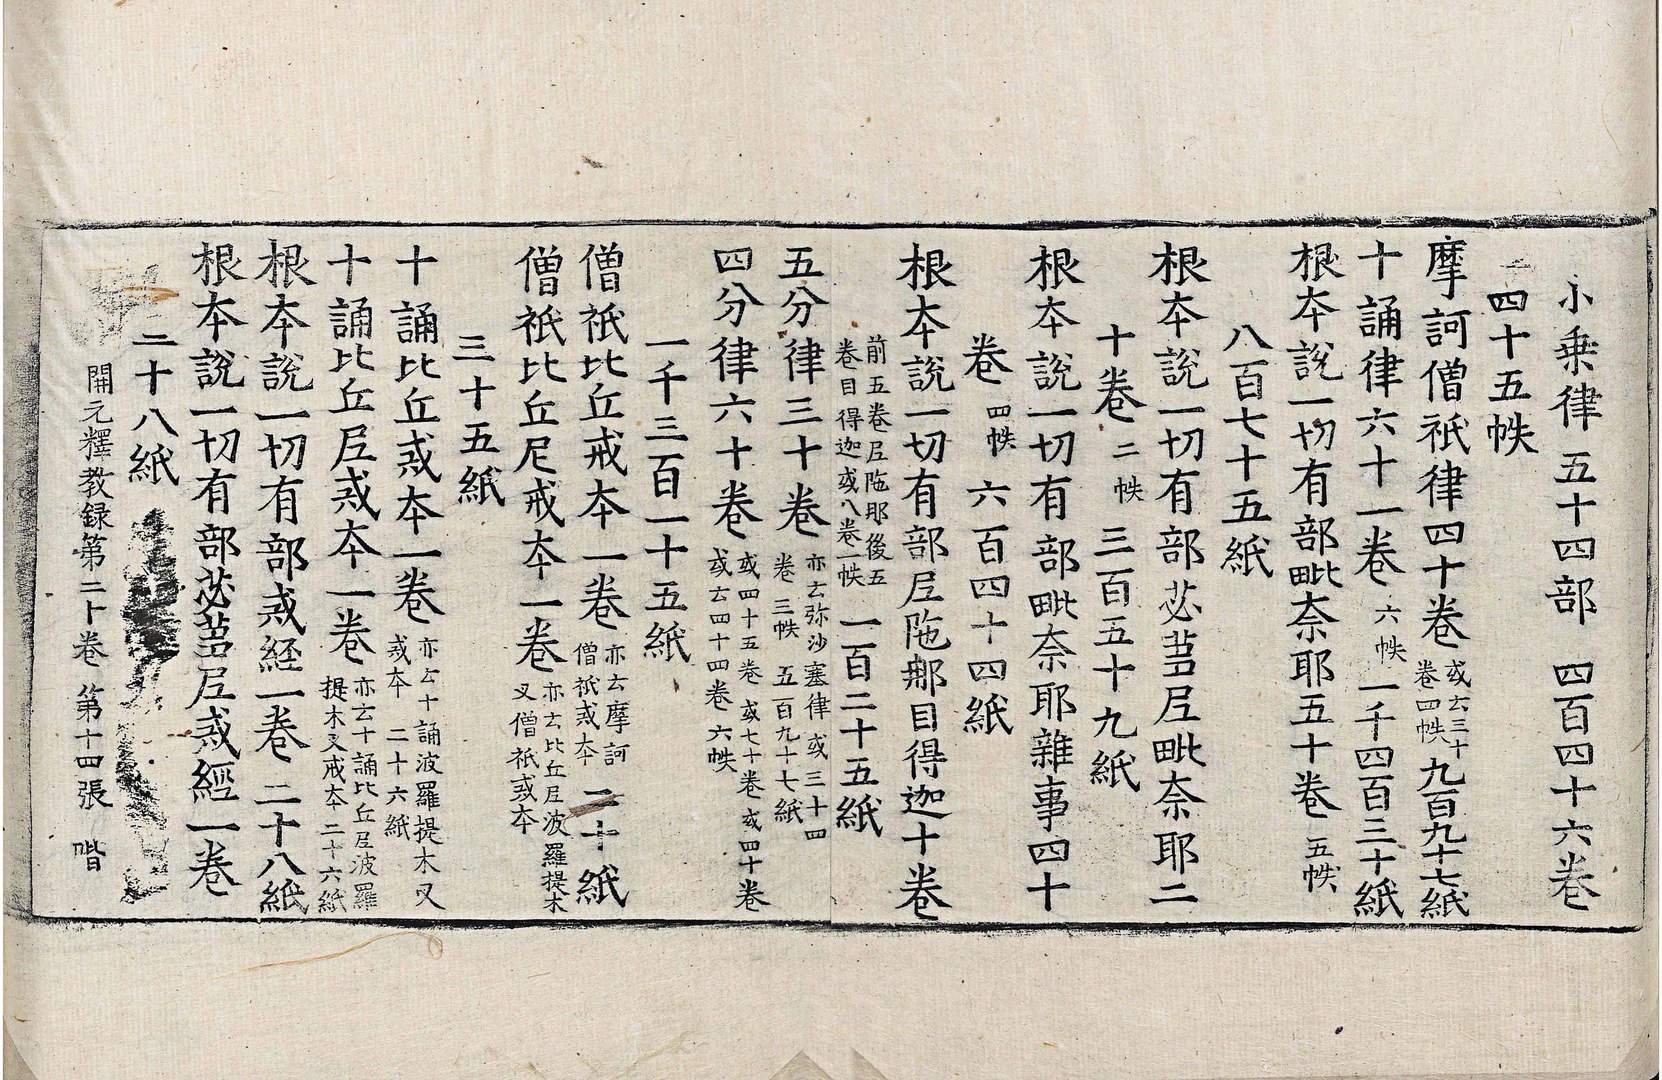 小乗律五十四部　四百四十六巻
四十五帙
摩訶僧祇律四十巻 或云三十巻四帙 九百九十七紙
十誦律六十一巻 六帙 一千四百三十紙
根夲說一切有部毗奈耶五十巻 五帙
八百七十五紙
根夲說一切有部苾蒭尼毗奈耶二
十巻 二帙 三百五十九紙
根夲說一切有部毗奈耶雜事四十
巻 四帙 六百四十四紙
根夲說一切有部尼陁那目得迦十巻
前五巻尼陁耶後五巻目得迦或八巻一帙 一百二十五紙
五分律三十巻 亦云弥沙塞律或三十四巻 三帙 五百九十七紙
四分律六十巻 或四十五巻 或七十巻 或四十巻 或云四十四巻 六帙
一千三百一十五紙
僧祇比丘戒夲一巻 亦云摩訶僧祇戒夲 二十紙
僧祇比丘尼戒夲一巻 亦云比丘尼波羅提木叉僧祇戒夲
三十五紙
十誦比丘戒夲一巻 亦云十誦波羅提木叉戒夲 二十六紙
十誦比丘尼戒夲一巻 亦云十誦比丘尼波羅提木叉戒夲 二十六紙
根夲說一切有部戒経一巻 二十八紙
根夲說一切有部苾蒭尼戒經一巻
二十八紙
開元釋教録第二十巻 第十四張 階